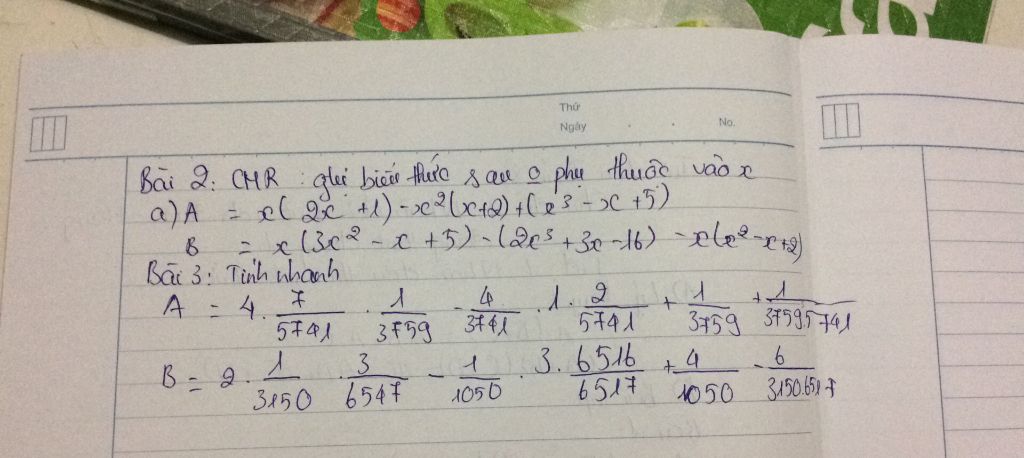 Thứ
Ngày . . No.
Bài 2: CMR : giá biểu thức sau o phụ thuộc vào x
a) A = x(2x + 1) - x²(x+2) + (x³ - x + 5)
B = x(3x² - x + 5) - (2x³ + 3x - 16) - x(x² - x + 2)
Bài 3: Tính nhanh
A = 4 . 7/5741 . 1/3759 - 4/3741 . 1 . 2/5741 + 1/3759 + 1/3759.5741
B = 2 . 1/3150 . 3/6547 - 1/1050 . 3 . 6516/6517 + 4/1050 - 6/3150.6517